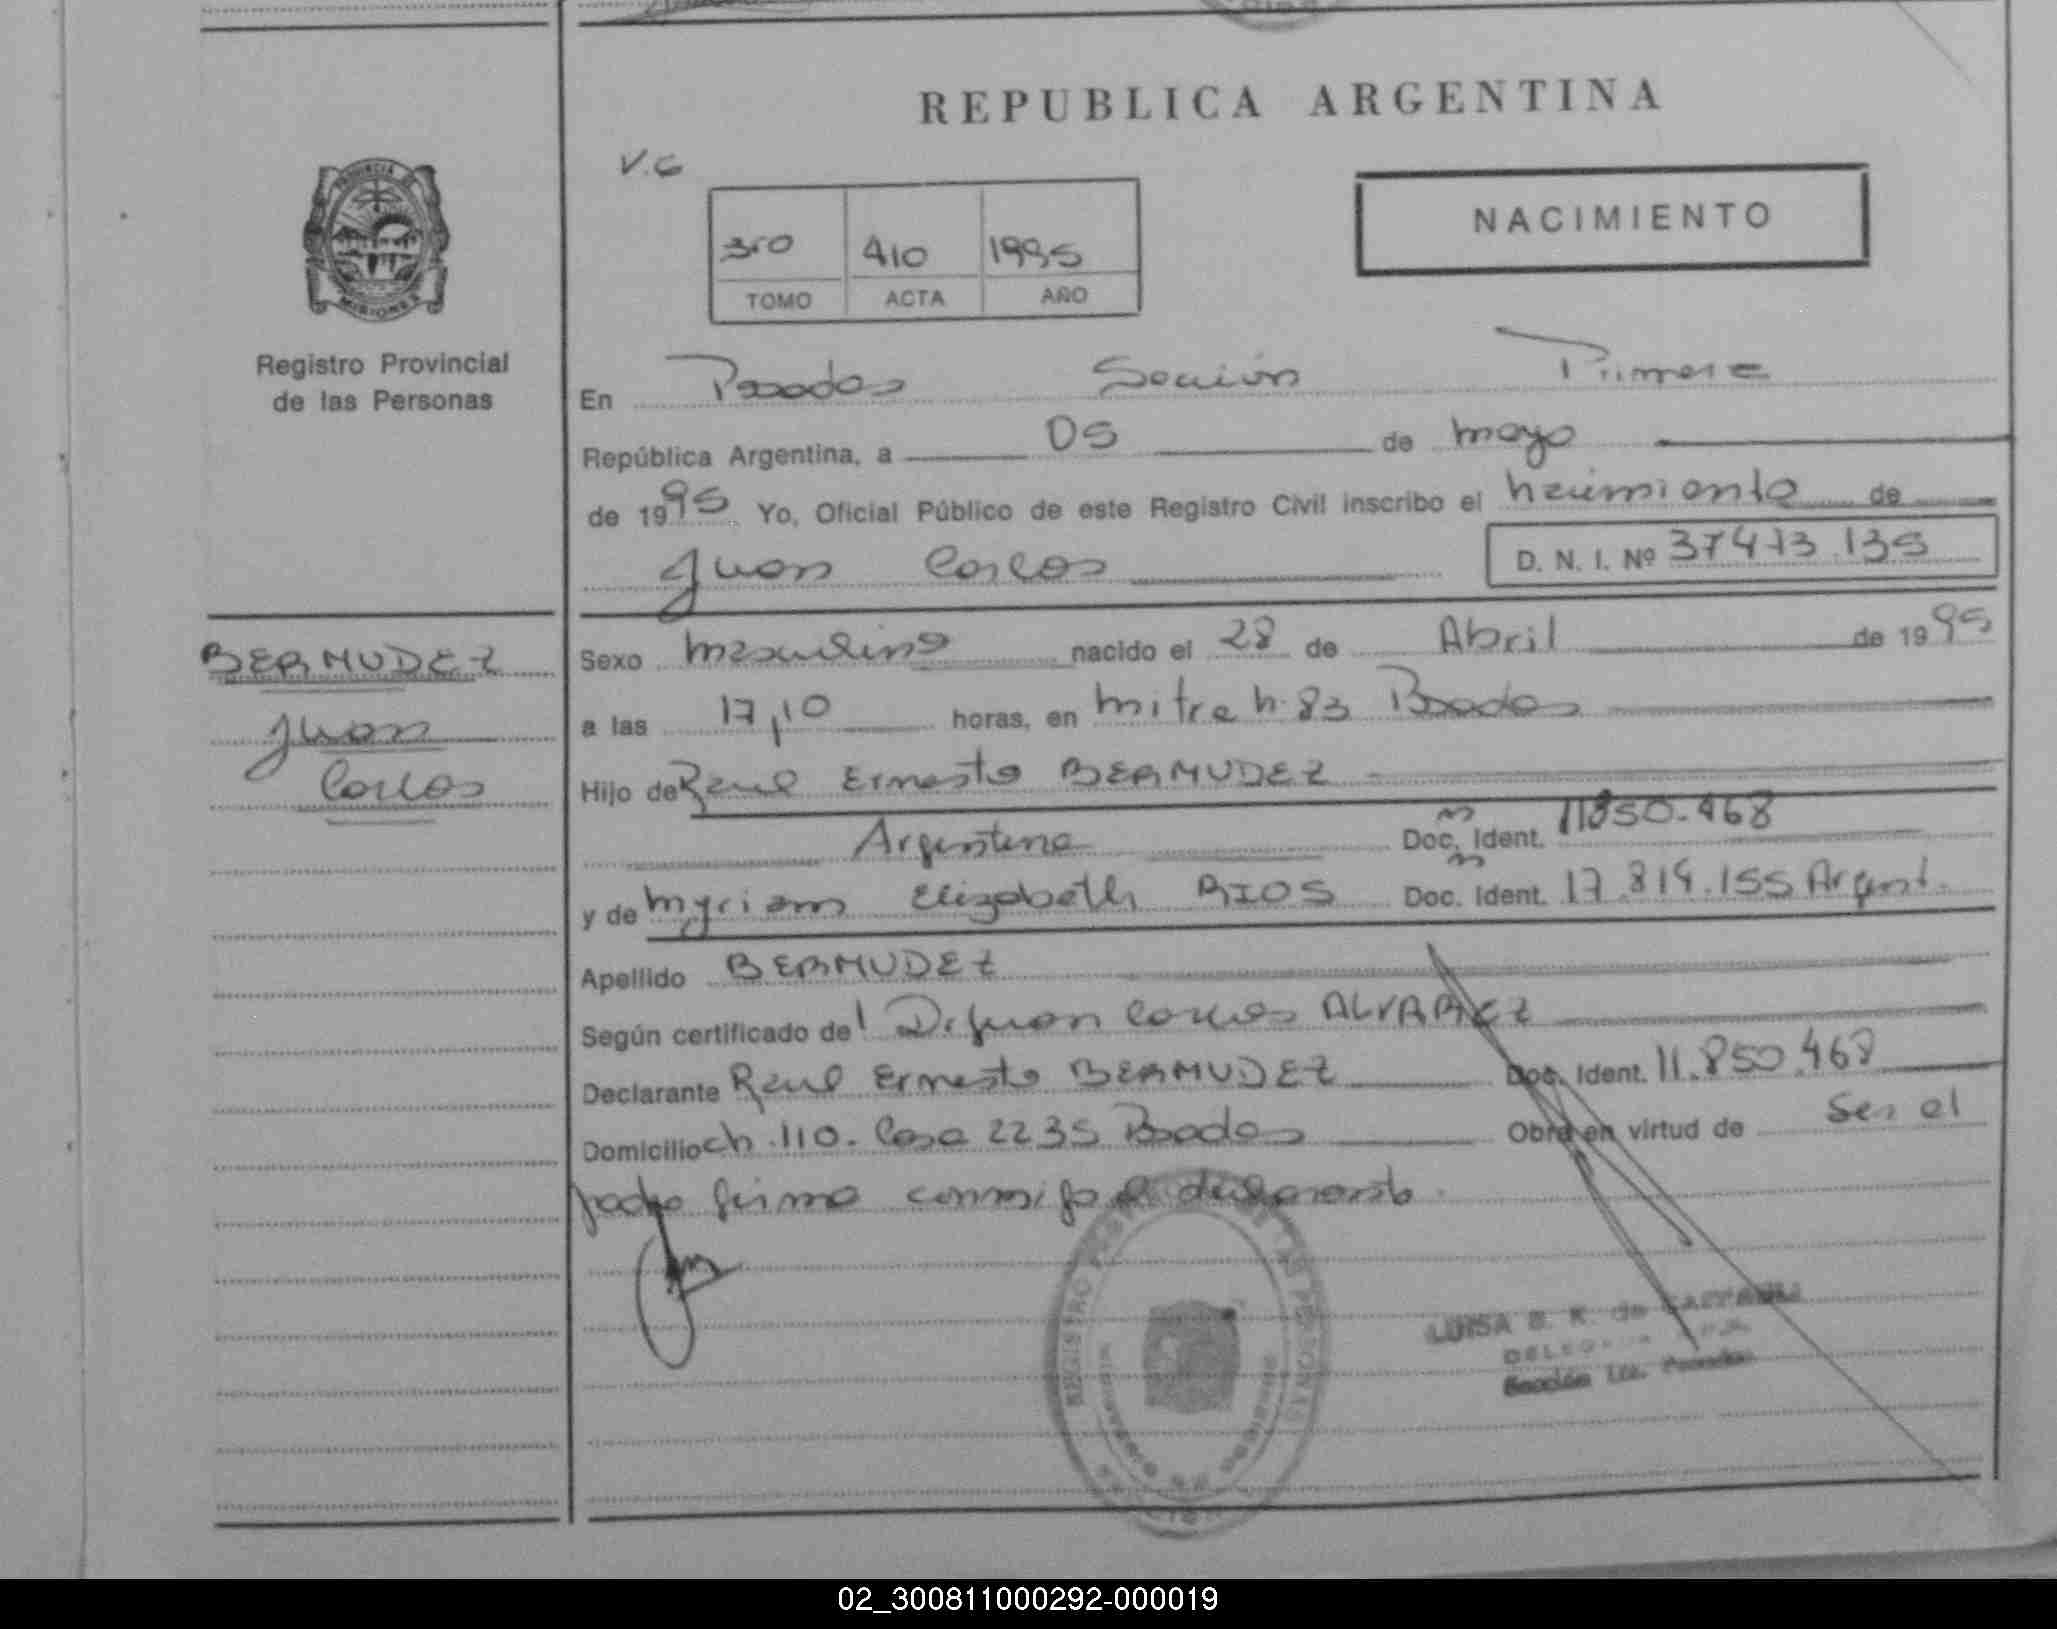 REPUBLICA ARGENTINA
V.C
NACIMIENTO
3ro 410 1995
TOMO ACTA AÑO
PROVINCIA DE
MISIONES
Registro Provincial
de las Personas
En Posadas Sección Primera
República Argentina, a 05 de mayo
de 1995 Yo, Oficial Público de este Registro Civil inscribo el nacimiento de
Juan Carlos D. N. I. Nº 37473.135
BERMUDEZ
Juan
Carlos
Sexo masculino nacido el 28 de Abril de 1995
a las 17,10 horas, en mitre n. 83 Posadas
Hijo de Raul Ernesto BERMUDEZ
Argentina Doc. Ident. 11850.468
y de Myriam Elizabeth RIOS Doc. Ident. 17.814.155 Argent.
Apellido BERMUDEZ
Según certificado del Dr Juan Carlos ALVAREZ
Declarante Raul Ernesto BERMUDEZ Doc. Ident. 11.850.468
Domicilio ch. 110. Casa 2235 Posadas Obra en virtud de Ser el
padre firma conmigo el declarante.
REGISTRO PERSONAS
LUISA B. K. de
Sección 1ra. Posadas
02_300811000292-000019